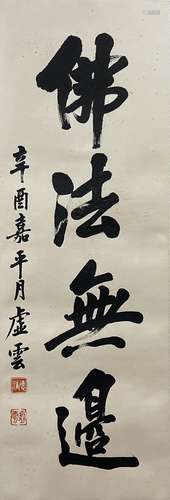 佛法無邊
辛酉嘉平月虛雲